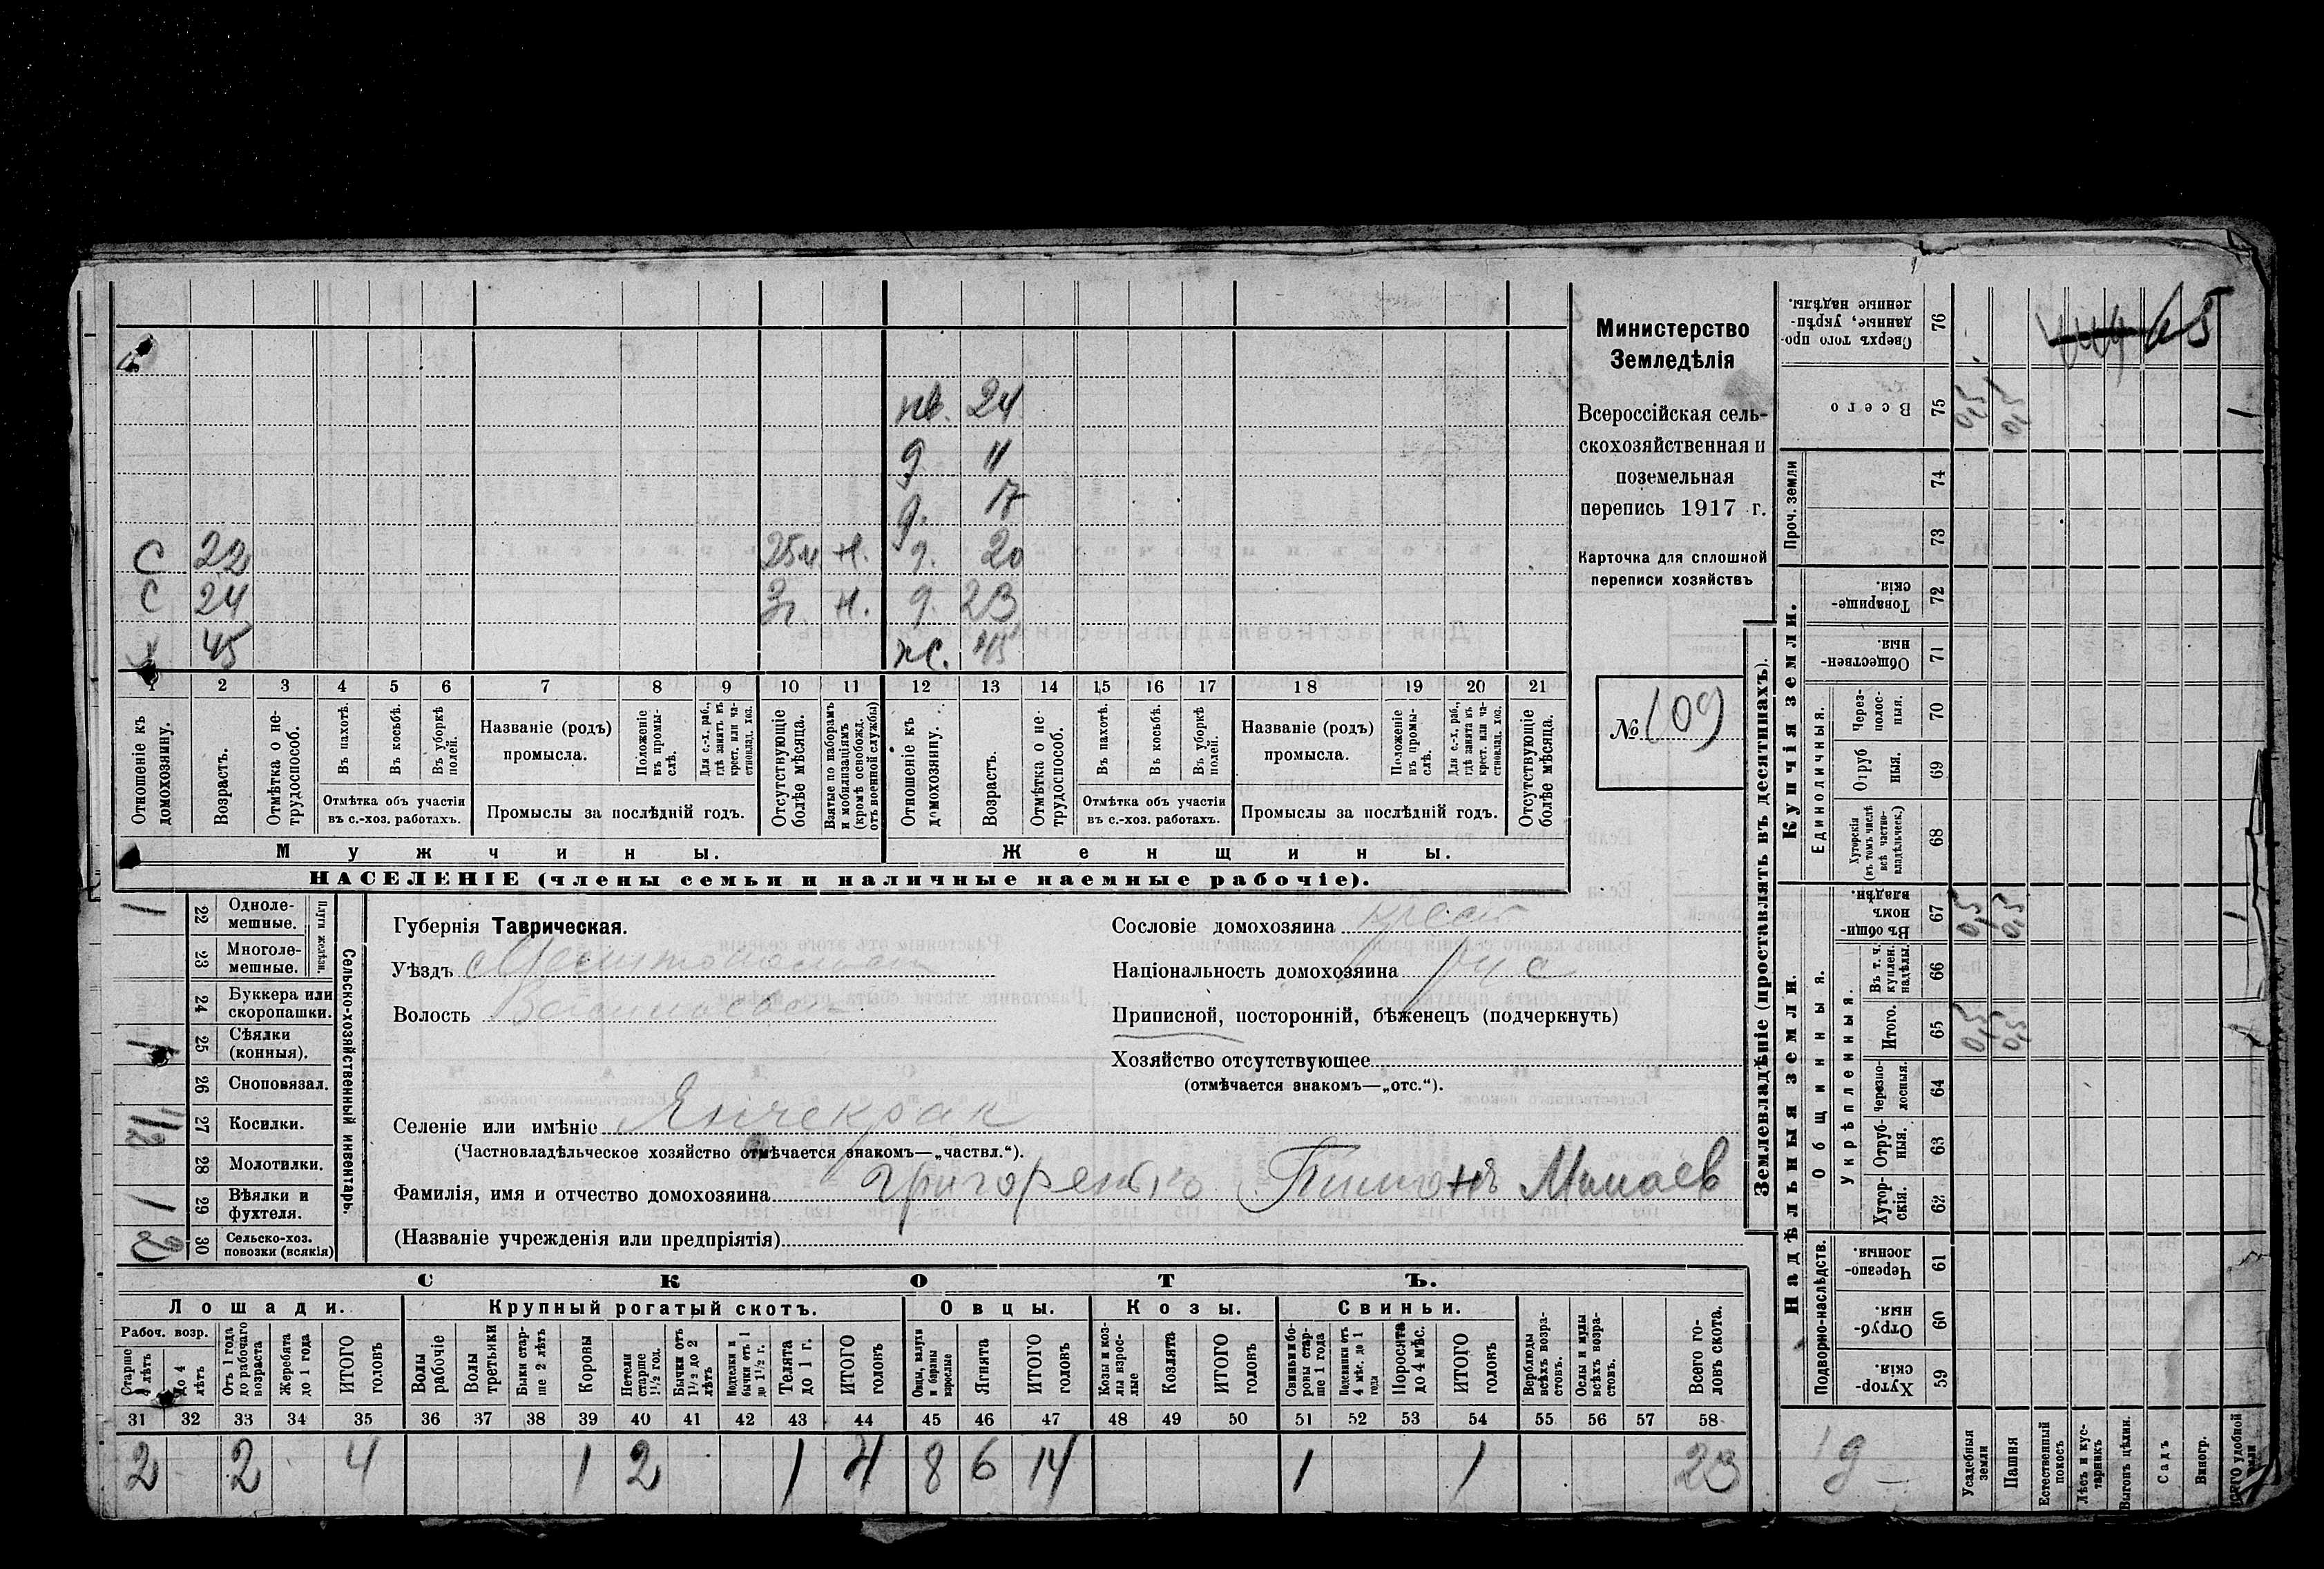 нв. 24
д 11
д. 17
С 22 25м н. д. 20
С 24 3г. н. д. 23
х 45 ж. 45
1 2 3 4 5 6 7 8 9 10 11 12 13 14 15 16 17 18 19 20 21
Отношеніе къ домохозяину.
Возрастъ.
Отмѣтка о не-трудоспособ.
Въ пахотѣ.
Въ косьбѣ.
Въ уборкѣ полей.
Отмѣтка объ участіи въ с.-хоз. работахъ.
Названіе (родъ) промысла.
Положеніе въ промы-слѣ.
Для с.-х. раб., гдѣ занятъ въ крест. или ча-стновлад. хоз.
Промыслы за послѣдній годъ.
Отсутствующіе болѣе мѣсяца.
Взятые по наборамъ и мобилизаціямъ (кромѣ освобожд. отъ военной службы)
Отношеніе къ домохозяину.
Возрастъ.
Отмѣтка о не-трудоспособ.
Въ пахотѣ.
Въ косьбѣ.
Въ уборкѣ полей.
Отмѣтка объ участіи въ с.-хоз. работахъ.
Названіе (родъ) промысла.
Положеніе въ промы-слѣ.
Для с.-х. раб., гдѣ занята въ крест. или ча-стновлад. хоз.
Промыслы за послѣдній годъ.
Отсутствующіе болѣе мѣсяца.
Мужчины.
Женщины.
НАСЕЛЕНІЕ (члены семьи и наличные наемные рабочіе).
Министерство
Земледѣлія
Всероссійская сель-
скохозяйственная и
поземельная
перепись 1917 г.
Карточка для сплошной
переписи хозяйствъ
№ 109
Сельско-хозяйственный инвентарь.
Плуги желѣзн.
1 22 Одноле-мешные.
23 Многоле-мешные.
24 Буккера или скоропашки.
1 25 Сѣялки (конныя).
26 Сноповязал.
1/2 27 Косилки.
28 Молотилки.
1 29 Вѣялки и фухтеля.
2 30 Сельско-хоз. повозки (всякія)
Губернія Таврическая.
Уѣздъ Мелитопольскій
Волость Васильевск
Сословіе домохозяина крест
Національность домохозяина рус
Приписной, посторонній, бѣженецъ (подчеркнуть)
Хозяйство отсутствующее
(отмѣчается знакомъ—„отс.“).
Селеніе или имѣніе Янчекрак
(Частновладѣльческое хозяйство отмѣчается знакомъ—„частвл.“).
Фамилія, имя и отчество домохозяина Григоренко Пимонъ Минаев
(Названіе учрежденія или предпріятія)
СКОТЪ.
Лошади. Крупный рогатый скотъ. Овцы. Козы. Свиньи.
Рабоч. возр.
Старше 4 лѣтъ
До 4 лѣтъ
Отъ 1 года до рабочаго возраста
Жеребята до 1 года
ИТОГО головъ
Волы рабочіе
Волы третьяки
Быки стар-ше 2 лѣтъ
Коровы
Нетели старше 1½ год.
Бычки отъ 1½ до 2 лѣтъ
Подтелки и бычки отъ 1 до 1½ г.
Телята до 1 г.
ИТОГО головъ
Овцы, валухи и бараны взрослые
Ягнята
ИТОГО головъ
Козы и коз-лы взрос-лые
Козлята
ИТОГО головъ
Свиньи и бо-ровы стар-ше 1 года
Подсвинки отъ 4 мѣс. до 1 года
Поросята до 4 мѣс.
ИТОГО головъ
Верблюды всѣхъ возра-стовъ.
Ослы и мулы всѣхъ возра-стовъ.
Всего го-ловъ скота.
31 32 33 34 35 36 37 38 39 40 41 42 43 44 45 46 47 48 49 50 51 52 53 54 55 56 57 58
2 2 4 1 2 1 4 8 6 14 1 1 23
Землевладѣніе (проставлять въ десятинахъ).
Купчія земли.
Надѣльныя земли.
Сверхъ того про-данные, укрѣп-ленные надѣлы. 76
Всего 75 0,5 0,5 1
Проч. земли 74
73
Товарище-скія. 72
Обществен-ныя. 71
Единоличныя.
Через-полос-ныя. 70
Отруб-ныя. 69
Хуторскія (въ томъ числѣ всѣ частно-владѣльческ.) 68
Общинныя.
Въ общи-номъ владѣн. 67 0,5 0,5 1
Укрѣпленныя.
Въ т. ч. куплен. надѣлы 66
Итого. 65 0,5 0,5
Черезпо-лосныя. 64
Отруб-ныя. 63
Хутор-скія. 62
Подворно-наслѣдств.
Черезпо-лосныя. 61
Отруб-ныя. 60
Хутор-скія. 59
Усадебныя земли
Пашня
Естественный покосъ
Лѣсъ и кус-тарникъ
Выгонъ цѣлин.
Садъ
Виногр.
ИТОГО удобной земли